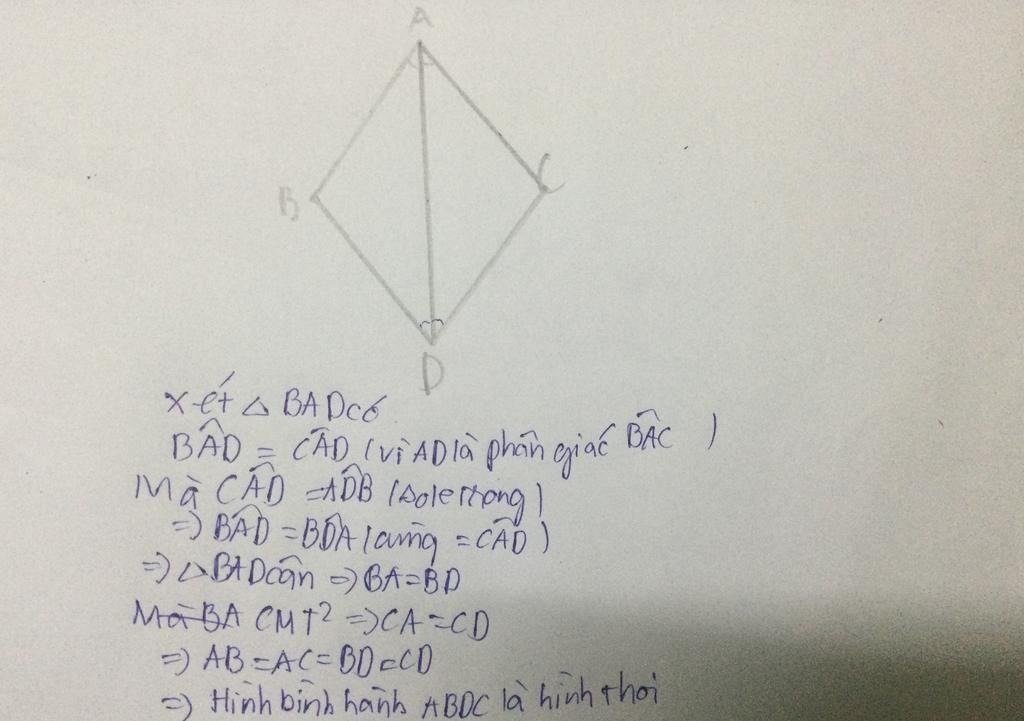 A
B
C
D
Xét △ BAD có
BÂD = CÂD (vì AD là phân giác BÂC )
Mà CÂD = AD̂B (sole trong)
=> BÂD = BD̂A (cùng = CÂD )
=> △ BAD cân => BA = BD
Mà BA CMT² => CA = CD
=> AB = AC = BD = CD
=> Hình bình hành ABDC là hình thoi